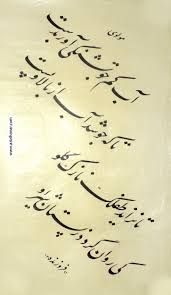 مولوی
آب کم جو تشنگی آور بدست
تا که جوشد آب از بالا و پست
تا نزاید طفلک نازک گلو
کی روان گردد ز پستان شیر او
www.adabhonar.com